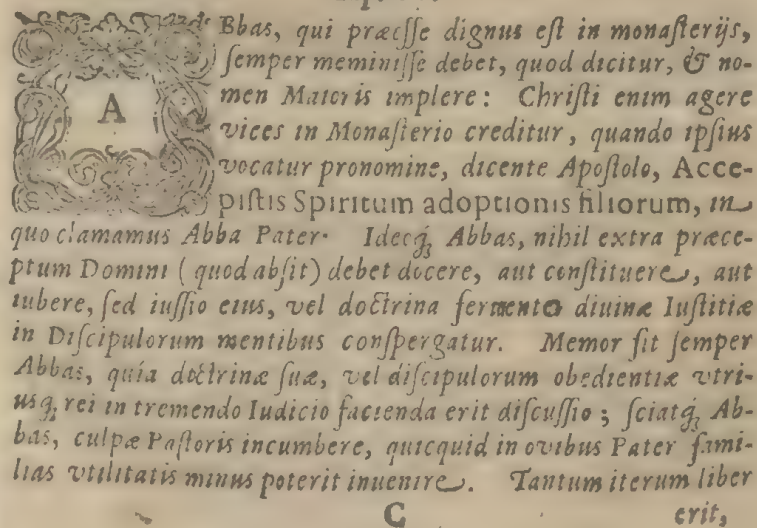 ABbas, qui præeſſe dignus eſt in monaſterijs,
ſemper meminiſſe debet, quod dicitur, & no-
men Maioris implere: Chriſti enim agere
vices in Monaſterio creditur, quando ipſius
vocatur pronomine, dicente Apoſtolo, Acce-
piſtis Spiritum adoptionis filiorum, in
quo clamamus Abba Pater. Ideoq́; Abbas, nihil extra præce-
ptum Domini (quod abſit) debet docere, aut conſtituere, aut
iubere, ſed iuſſio eius, vel doctrina fermento diuinæ Iuſtitiæ
in Diſcipulorum mentibus conſpergatur. Memor ſit ſemper
Abbas, quia doctrinæ ſuæ, vel diſcipulorum obedientiæ vtri-
uſq́; rei in tremendo Iudicio facienda erit diſcuſſio; ſciatq́; Ab-
bas, culpæ Paſtoris incumbere, quicquid in ovibus Pater fami-
lias vtilitatis minus poterit inuenire. Tantum iterum liber
C erit,